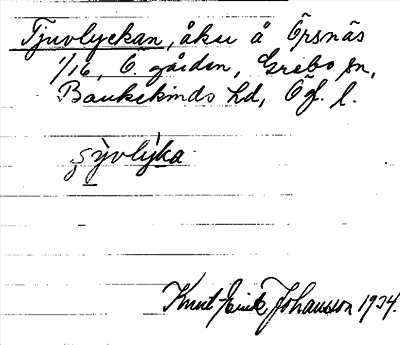 Tjuvlyckan, åker å Örsnäs
1/16, Ö. gården, Grebo sn,
Bankekinds hd, Ög. l.
Knut-Erik Johansson 1934.